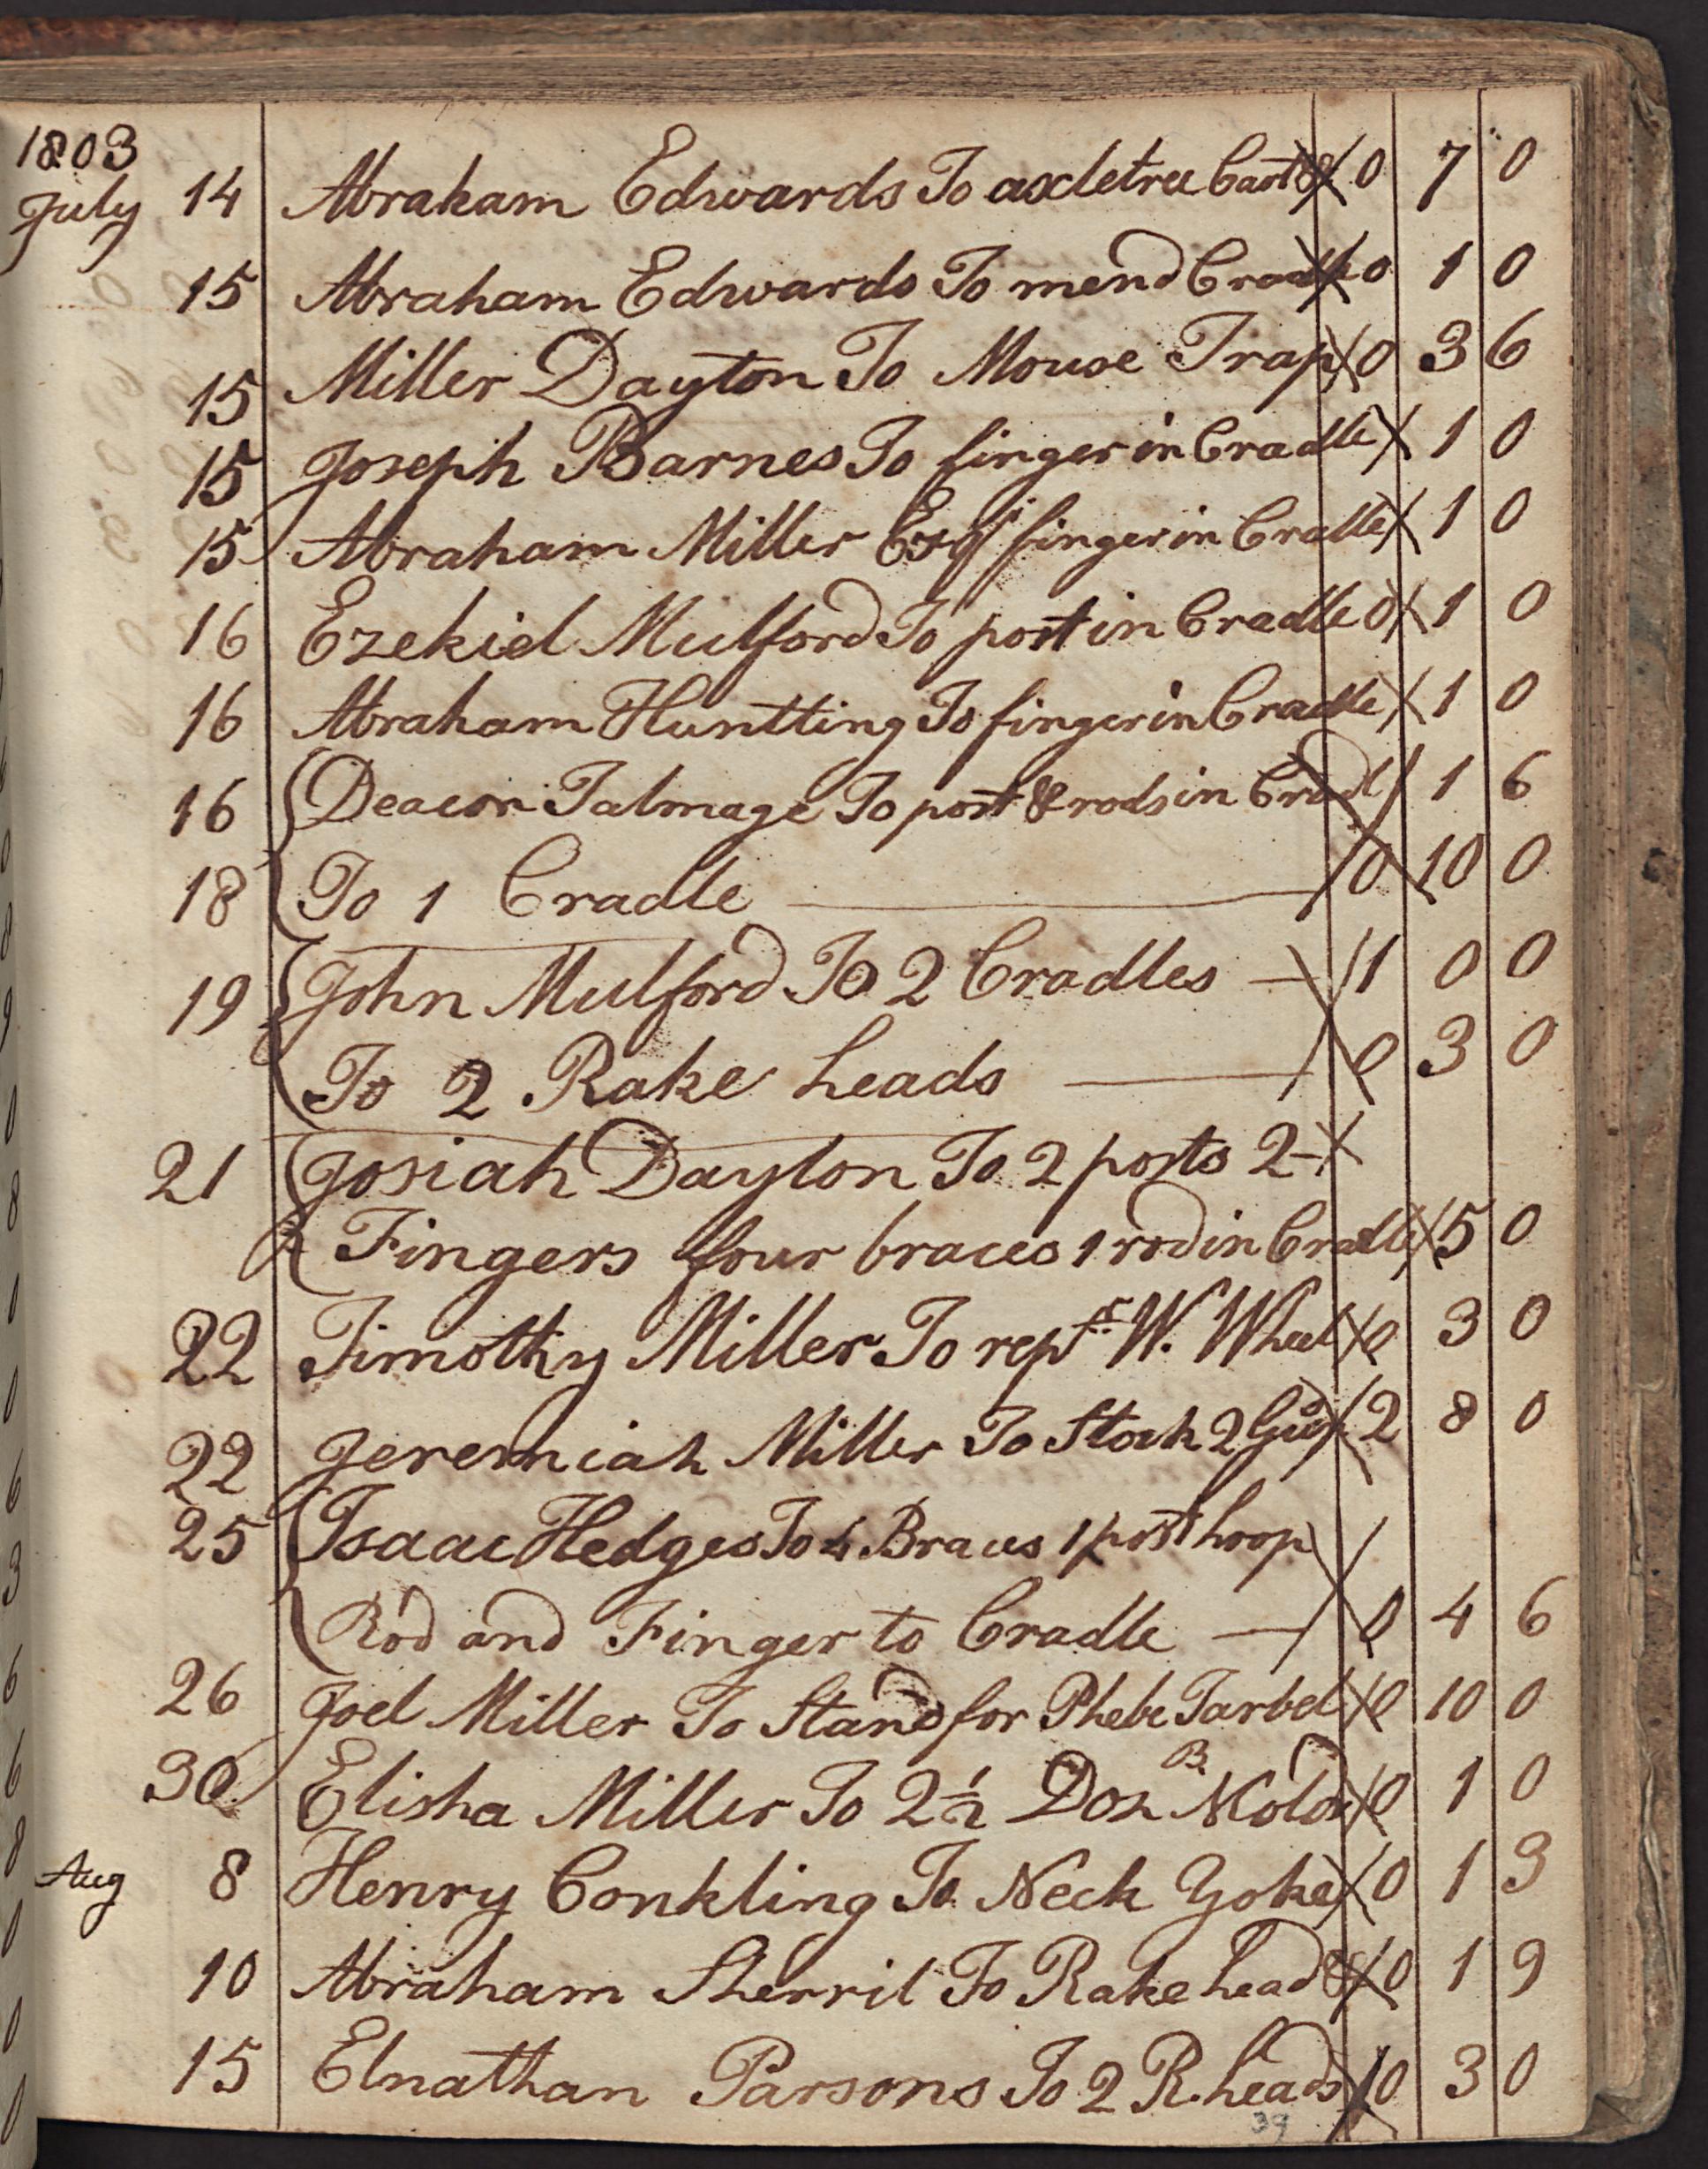 1803
July 14 Abraham Edwards To axcletree Cart & 0 7 0
15 Abraham Edwards To mend Cradle 0 1 0
15 Miller Dayton To Mouse Trap 0 3 6
15 Joseph Barnes To finger in Cradle 1 0
15 Abraham Miller Esqr finger in Cradle 1 0
16 Ezekiel Mulford To post in Cradle 0 1 0
16 Abraham Huntting To finger in Cradle 1 0
16 Deacon Talmage To post & rods in Crad 1 6
18 To 1 Cradle 0 10 0
19 John Mulford To 2 Cradles 1 0 0
To 2 Rake heads 0 3 0
21 Josiah Dayton To 2 posts 2
Fingers four braces 1 rod in Cradle 5 0
22 Timothy Miller To repr W. Wheel 0 3 0
22 Jeremiah Miller To Stock 2 2 8 0
25 Isaac Hedges To 4 Braces 1 post hoop
Rod and Finger to Cradle 0 4 6
26 Joel Miller To Stand for Phebe Tarbel 0 10 0
30 Elisha Miller To 2½ Doz B. Mold 0 1 0
Aug 8 Henry Conkling To Neck Yoke 0 1 3
10 Abraham Sherril To Rake head & 0 1 9
15 Elnathan Parsons To 2 R. heads 0 3 0
39